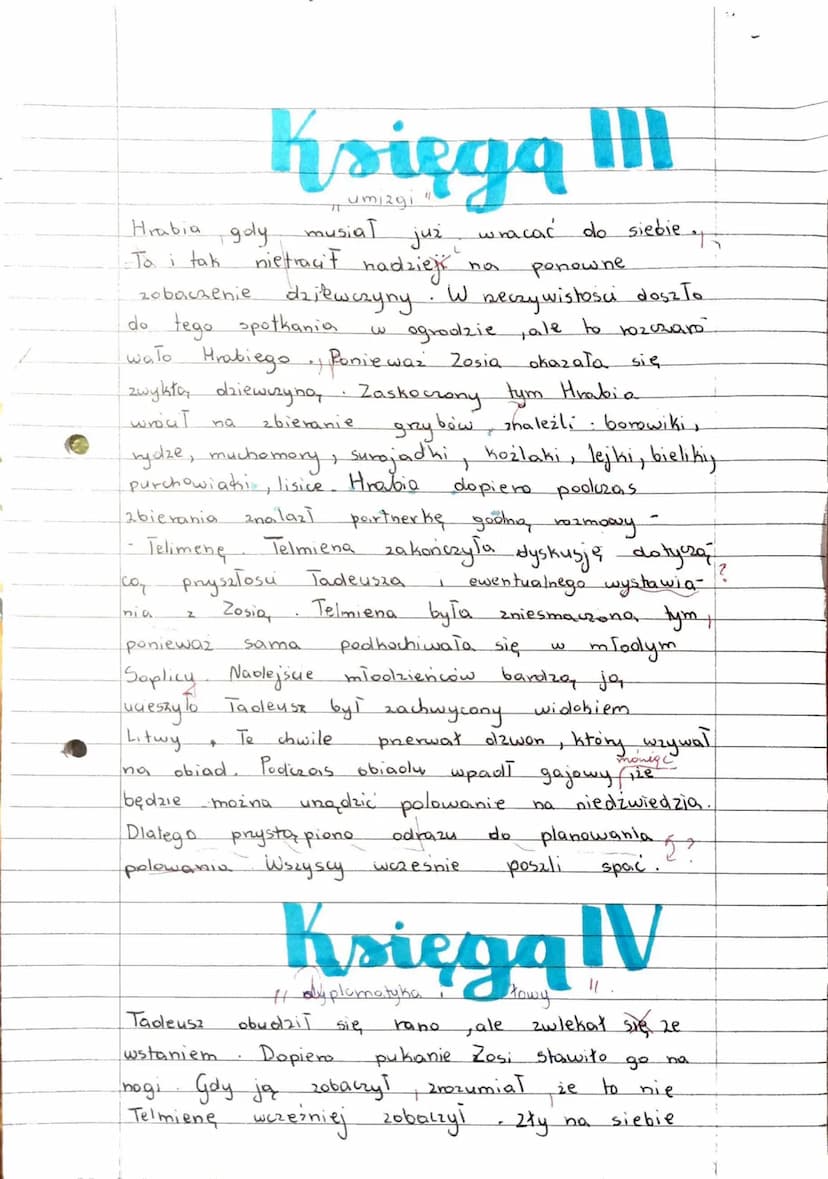 Księga III
„umizgi"
Hrabia, gdy musiał już wracać do siebie.,
To i tak nietracił nadzieji na ponowne
zobaczenie dziewczyny. W rzeczywistości doszło
do tego spotkania w ogrodzie, ale to rozczaro
wało Hrabiego., Ponieważ Zosia okazała się
zwykłą dziewczyną. Zaskoczony tym Hrabia
wrócił na zbieranie grzybów, znaleźli: borowiki,
rydze, muchomory, surojadki, koźlaki, lejki, bieliki,
purchowiatki, lisice. Hrabia dopiero podczas
zbierania znalazł partnerkę godną rozmowy -
- Telimenę. Telmiena zakończyła dyskusję dotyczą
cą przyszłości Tadeusza i ewentualnego wystawia- ?
nia z Zosią. Telmiena była zniesmaczona tym,
ponieważ sama podkochiwała się w młodym
Soplicy. Nadejście młodzieńców bardzą ją
ucieszyło Tadeusz był zachwycony widokiem
Litwy. Te chwile przerwał dzwon, który wzywał
mówiąc
na obiad. Podczas obiadu wpadł gajowy, że
będzie można urządzić polowanie na niedźwiedzia.
Dlatego przystąpiono odrazu do planowania
polowania. Wszyscy wcześnie poszli spać. ?
Księga IV
„dyplomatyka i łowy"
Tadeusz obudził się rano, ale zwlekał się ze
wstaniem. Dopiero pukanie Zosi stawiło go na
nogi. Gdy ją zobaczył, zrozumiał, że to nie
Telmienę wcześniej zobaczył. Zły na siebie